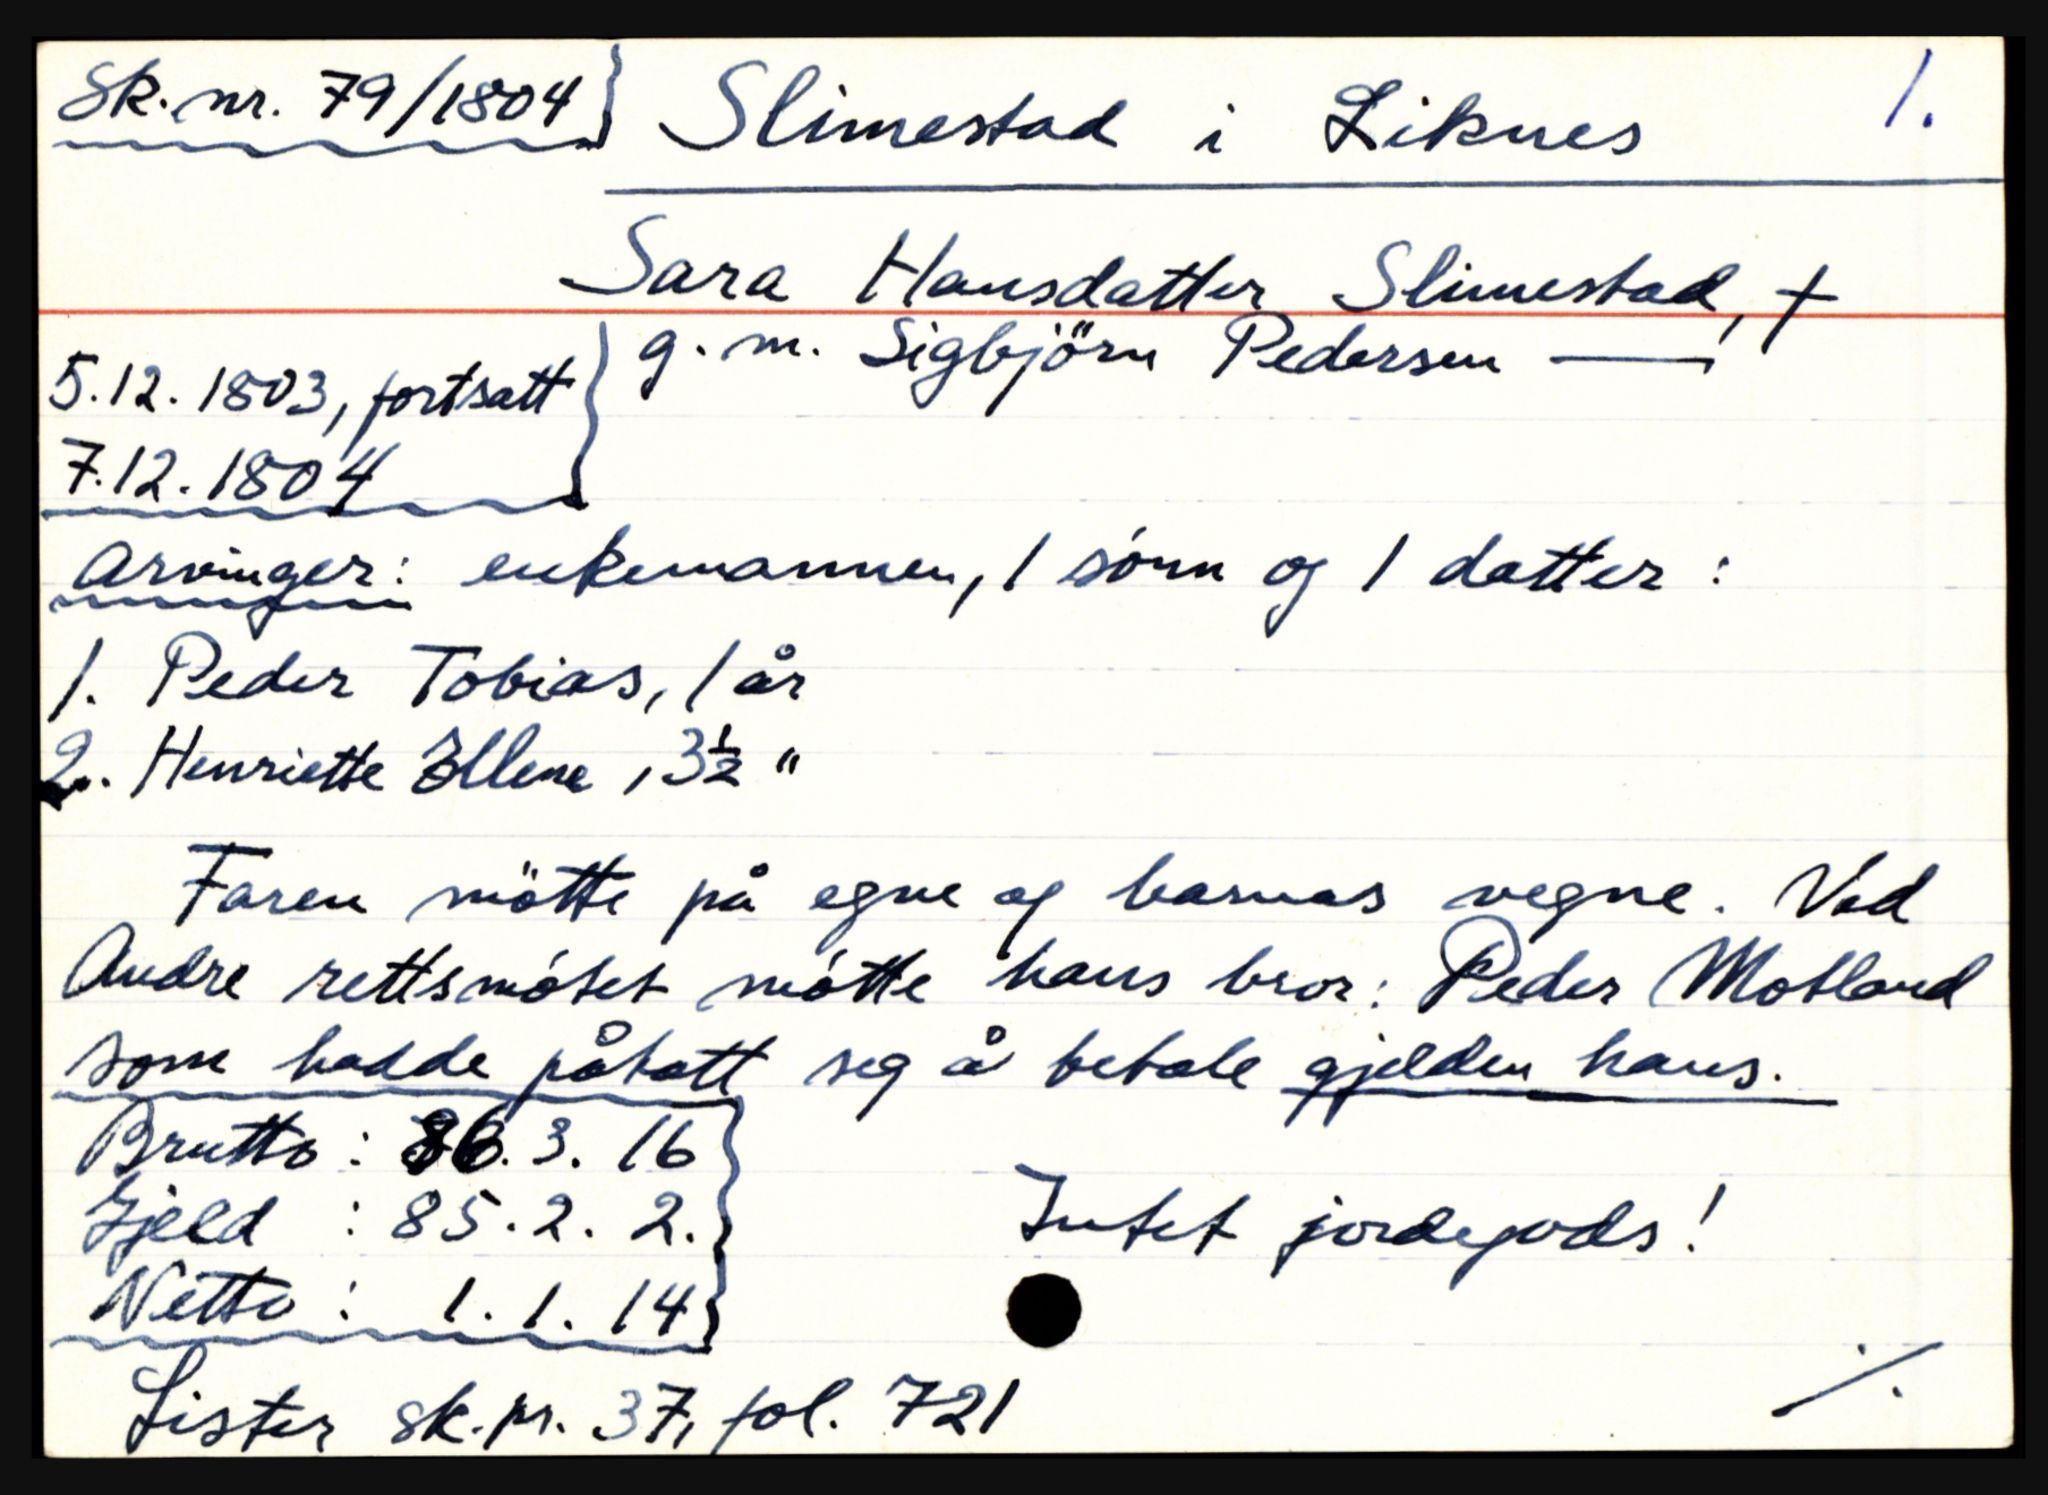 Sk. nr. 79/1804 Slimestad i Liknes 1.
Sara Hansdatter Slimestad, †
g. m. Sigbjörn Pedersen —"—
5.12.1803, fortsatt
7.12.1804
Arvinger: enkemannen, 1 sónn og 1 datter:
1. Peder Tobias, 1 år
2. Henriette Ellene, 3½ "
Faren mötte på egne og barnas vegne. Ved
Andre rettsmótet mótte hans bror: Peder Motland
som hadde påtatt seg å betale gjelden hans.
Brutto: 86. 3. 16
Gjeld : 85. 2. 2.
Intet jordegods!
Netto: 1. 1. 14
Lister sk. pr. 37, fol. 721 ./.